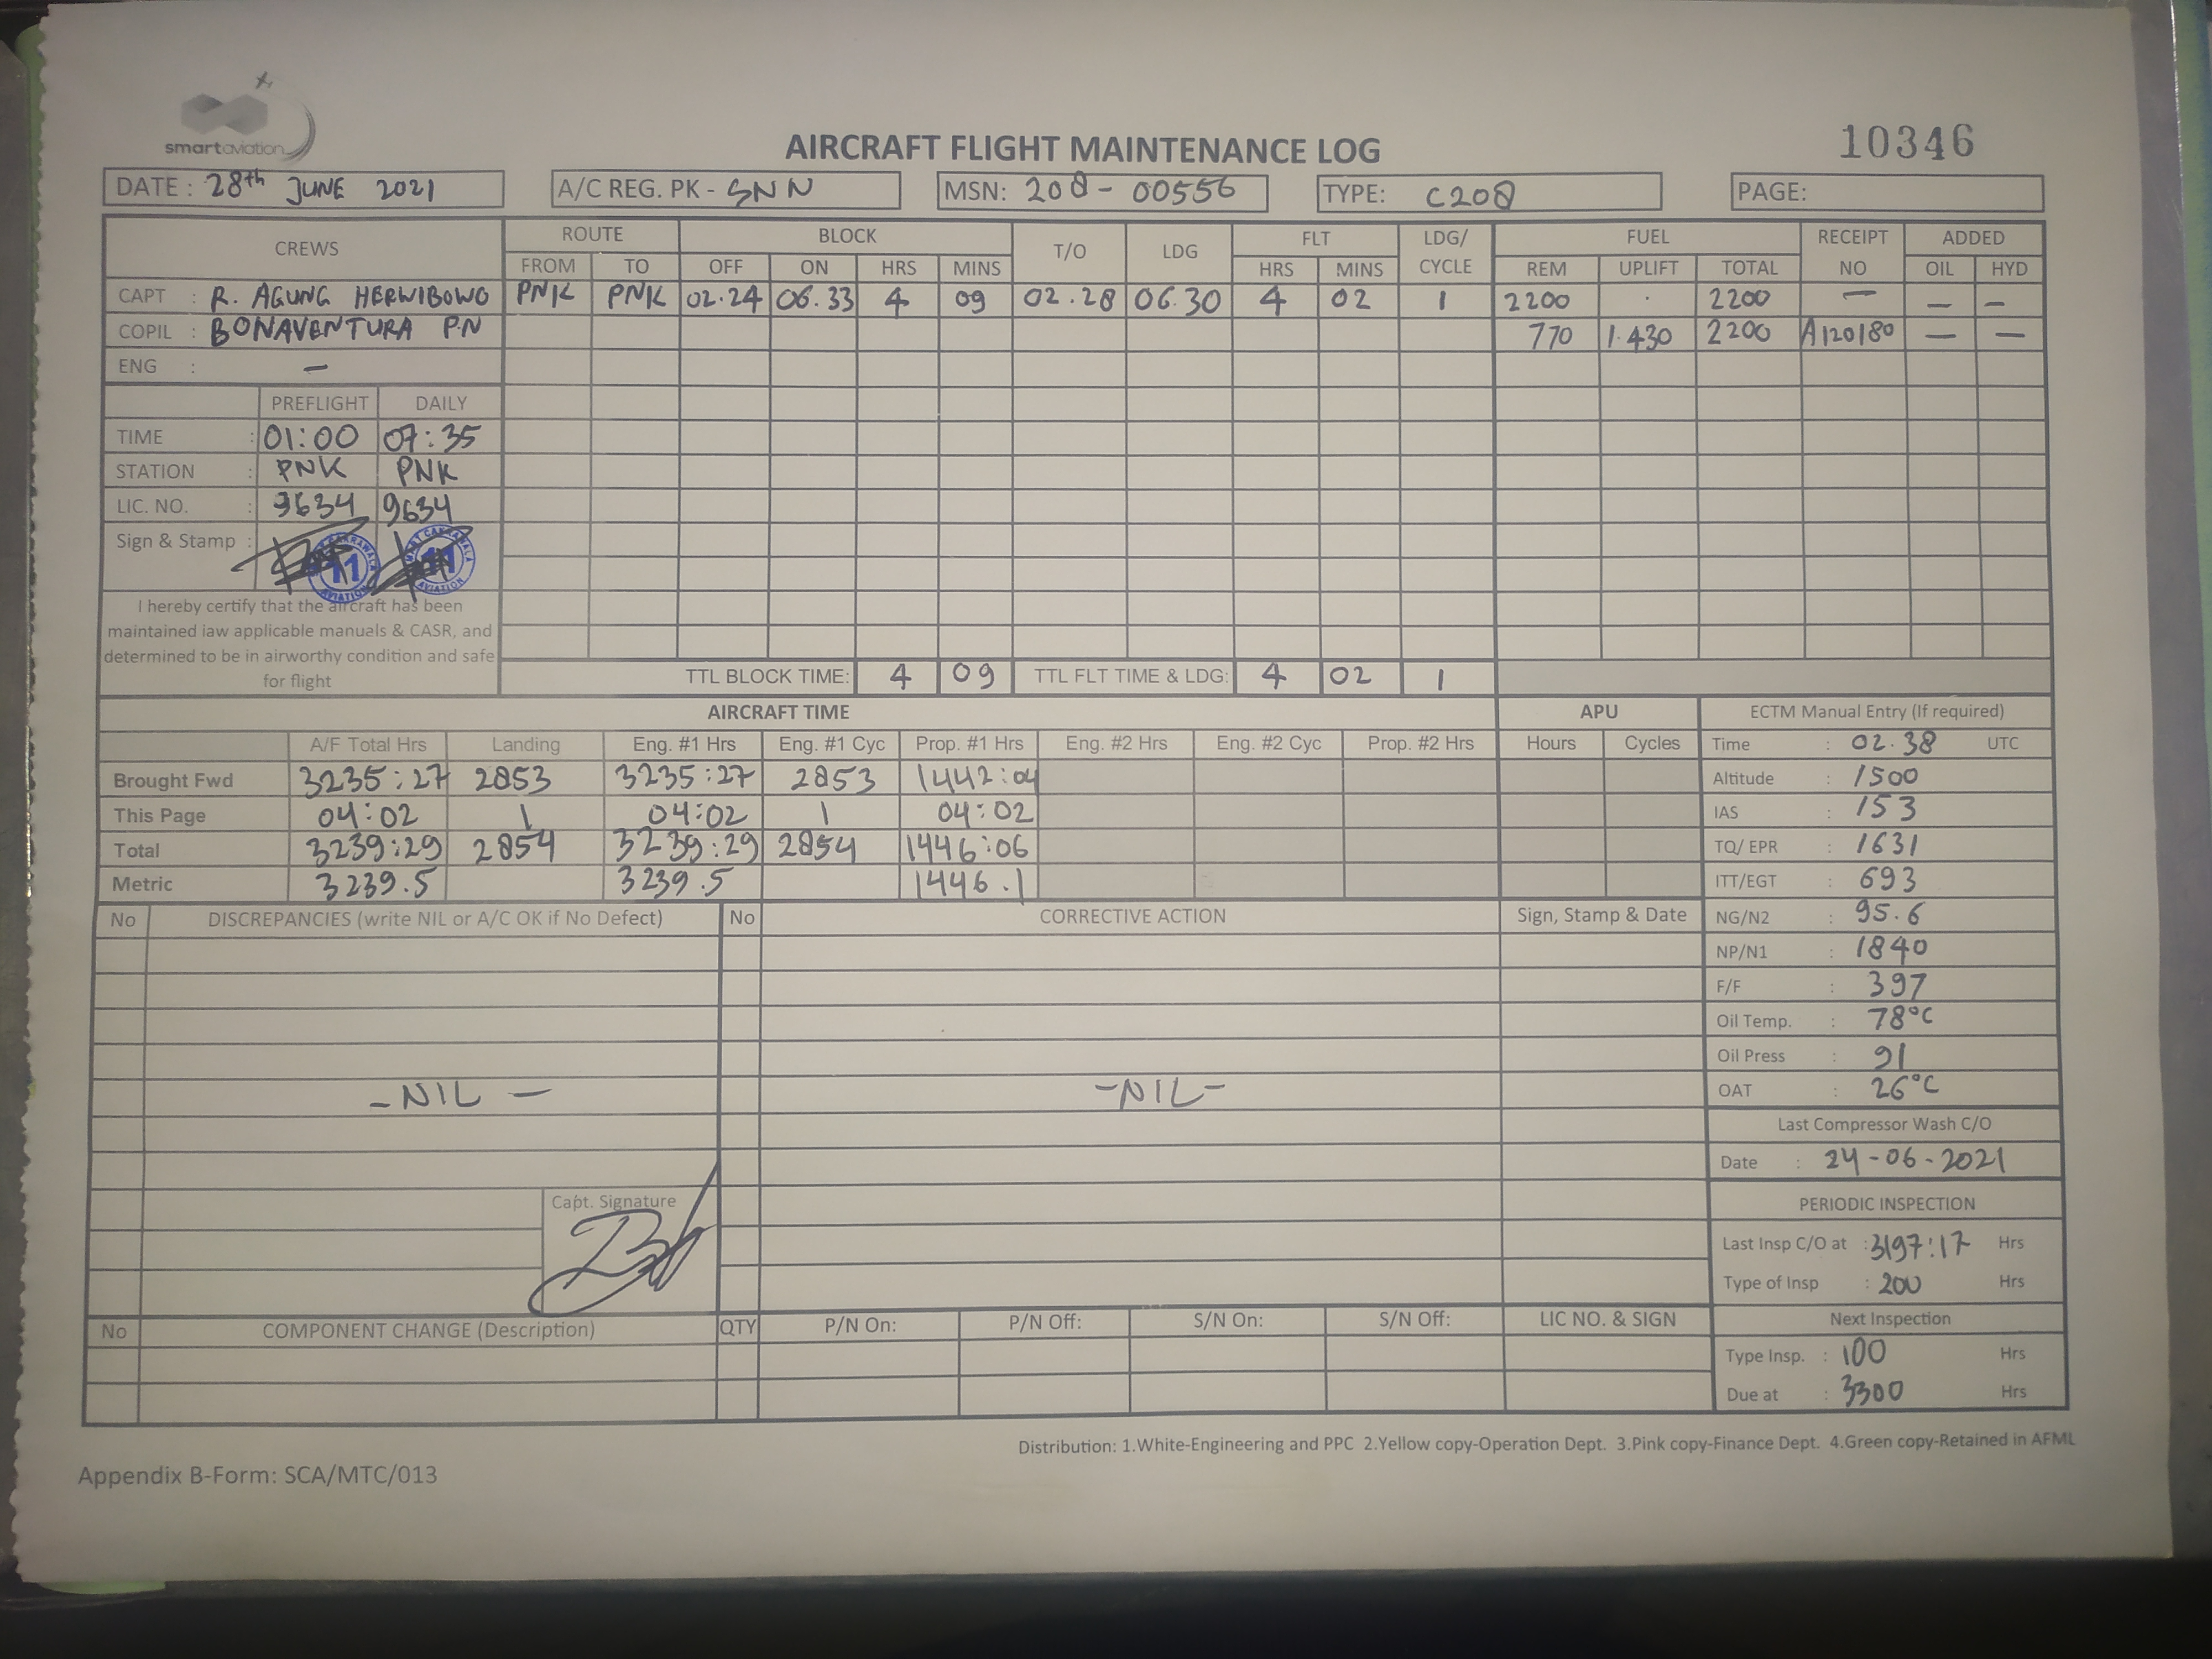 smartaviation
AIRCRAFT FLIGHT MAINTENANCE LOG
10346
DATE : 28th JUNE 2021 A/C REG. PK - SNN MSN: 208 - 00556 TYPE: C208 PAGE:
CREWS ROUTE BLOCK T/O LDG FLT LDG/ CYCLE FUEL RECEIPT NO ADDED
FROM TO OFF ON HRS MINS HRS MINS REM UPLIFT TOTAL OIL HYD
CAPT : R. AGUNG HERWIBOWO PNK PNK 02.24 06.33 4 09 02.28 06.30 4 02 1 2200 . 2200 — — —
COPIL : BONAVENTURA P.N 770 1.430 2200 A120180 — —
ENG : —
PREFLIGHT DAILY
TIME : 01:00 07:35
STATION : PNK PNK
LIC. NO. : 9634 9634
Sign & Stamp :
11 AVIATION
11 AVIATION
I hereby certify that the aircraft has been
maintained iaw applicable manuals & CASR, and
determined to be in airworthy condition and safe
for flight
TTL BLOCK TIME: 4 09 TTL FLT TIME & LDG: 4 02 1
AIRCRAFT TIME APU ECTM Manual Entry (If required)
A/F Total Hrs Landing Eng. #1 Hrs Eng. #1 Cyc Prop. #1 Hrs Eng. #2 Hrs Eng. #2 Cyc Prop. #2 Hrs Hours Cycles Time : 02.38 UTC
Brought Fwd 3235:27 2853 3235:27 2853 1442:04 Altitude : 1500
This Page 04:02 1 04:02 1 04:02 IAS : 153
Total 3239:29 2854 3239:29 2854 1446:06 TQ/ EPR : 1631
Metric 3239.5 3239.5 1446.1 ITT/EGT : 693
No DISCREPANCIES (write NIL or A/C OK if No Defect) No CORRECTIVE ACTION Sign, Stamp & Date NG/N2 : 95.6
NP/N1 : 1840
F/F : 397
Oil Temp. : 78°C
Oil Press : 91
- NIL - - NIL - OAT : 26°C
Last Compressor Wash C/O
Date : 24-06-2021
Capt. Signature
PERIODIC INSPECTION
Last Insp C/O at : 3197:17 Hrs
Type of Insp : 200 Hrs
No COMPONENT CHANGE (Description) QTY P/N On: P/N Off: S/N On: S/N Off: LIC NO. & SIGN Next Inspection
Type Insp. : 100 Hrs
Due at : 3300 Hrs
Distribution: 1.White-Engineering and PPC 2.Yellow copy-Operation Dept. 3.Pink copy-Finance Dept. 4.Green copy-Retained in AFML
Appendix B-Form: SCA/MTC/013